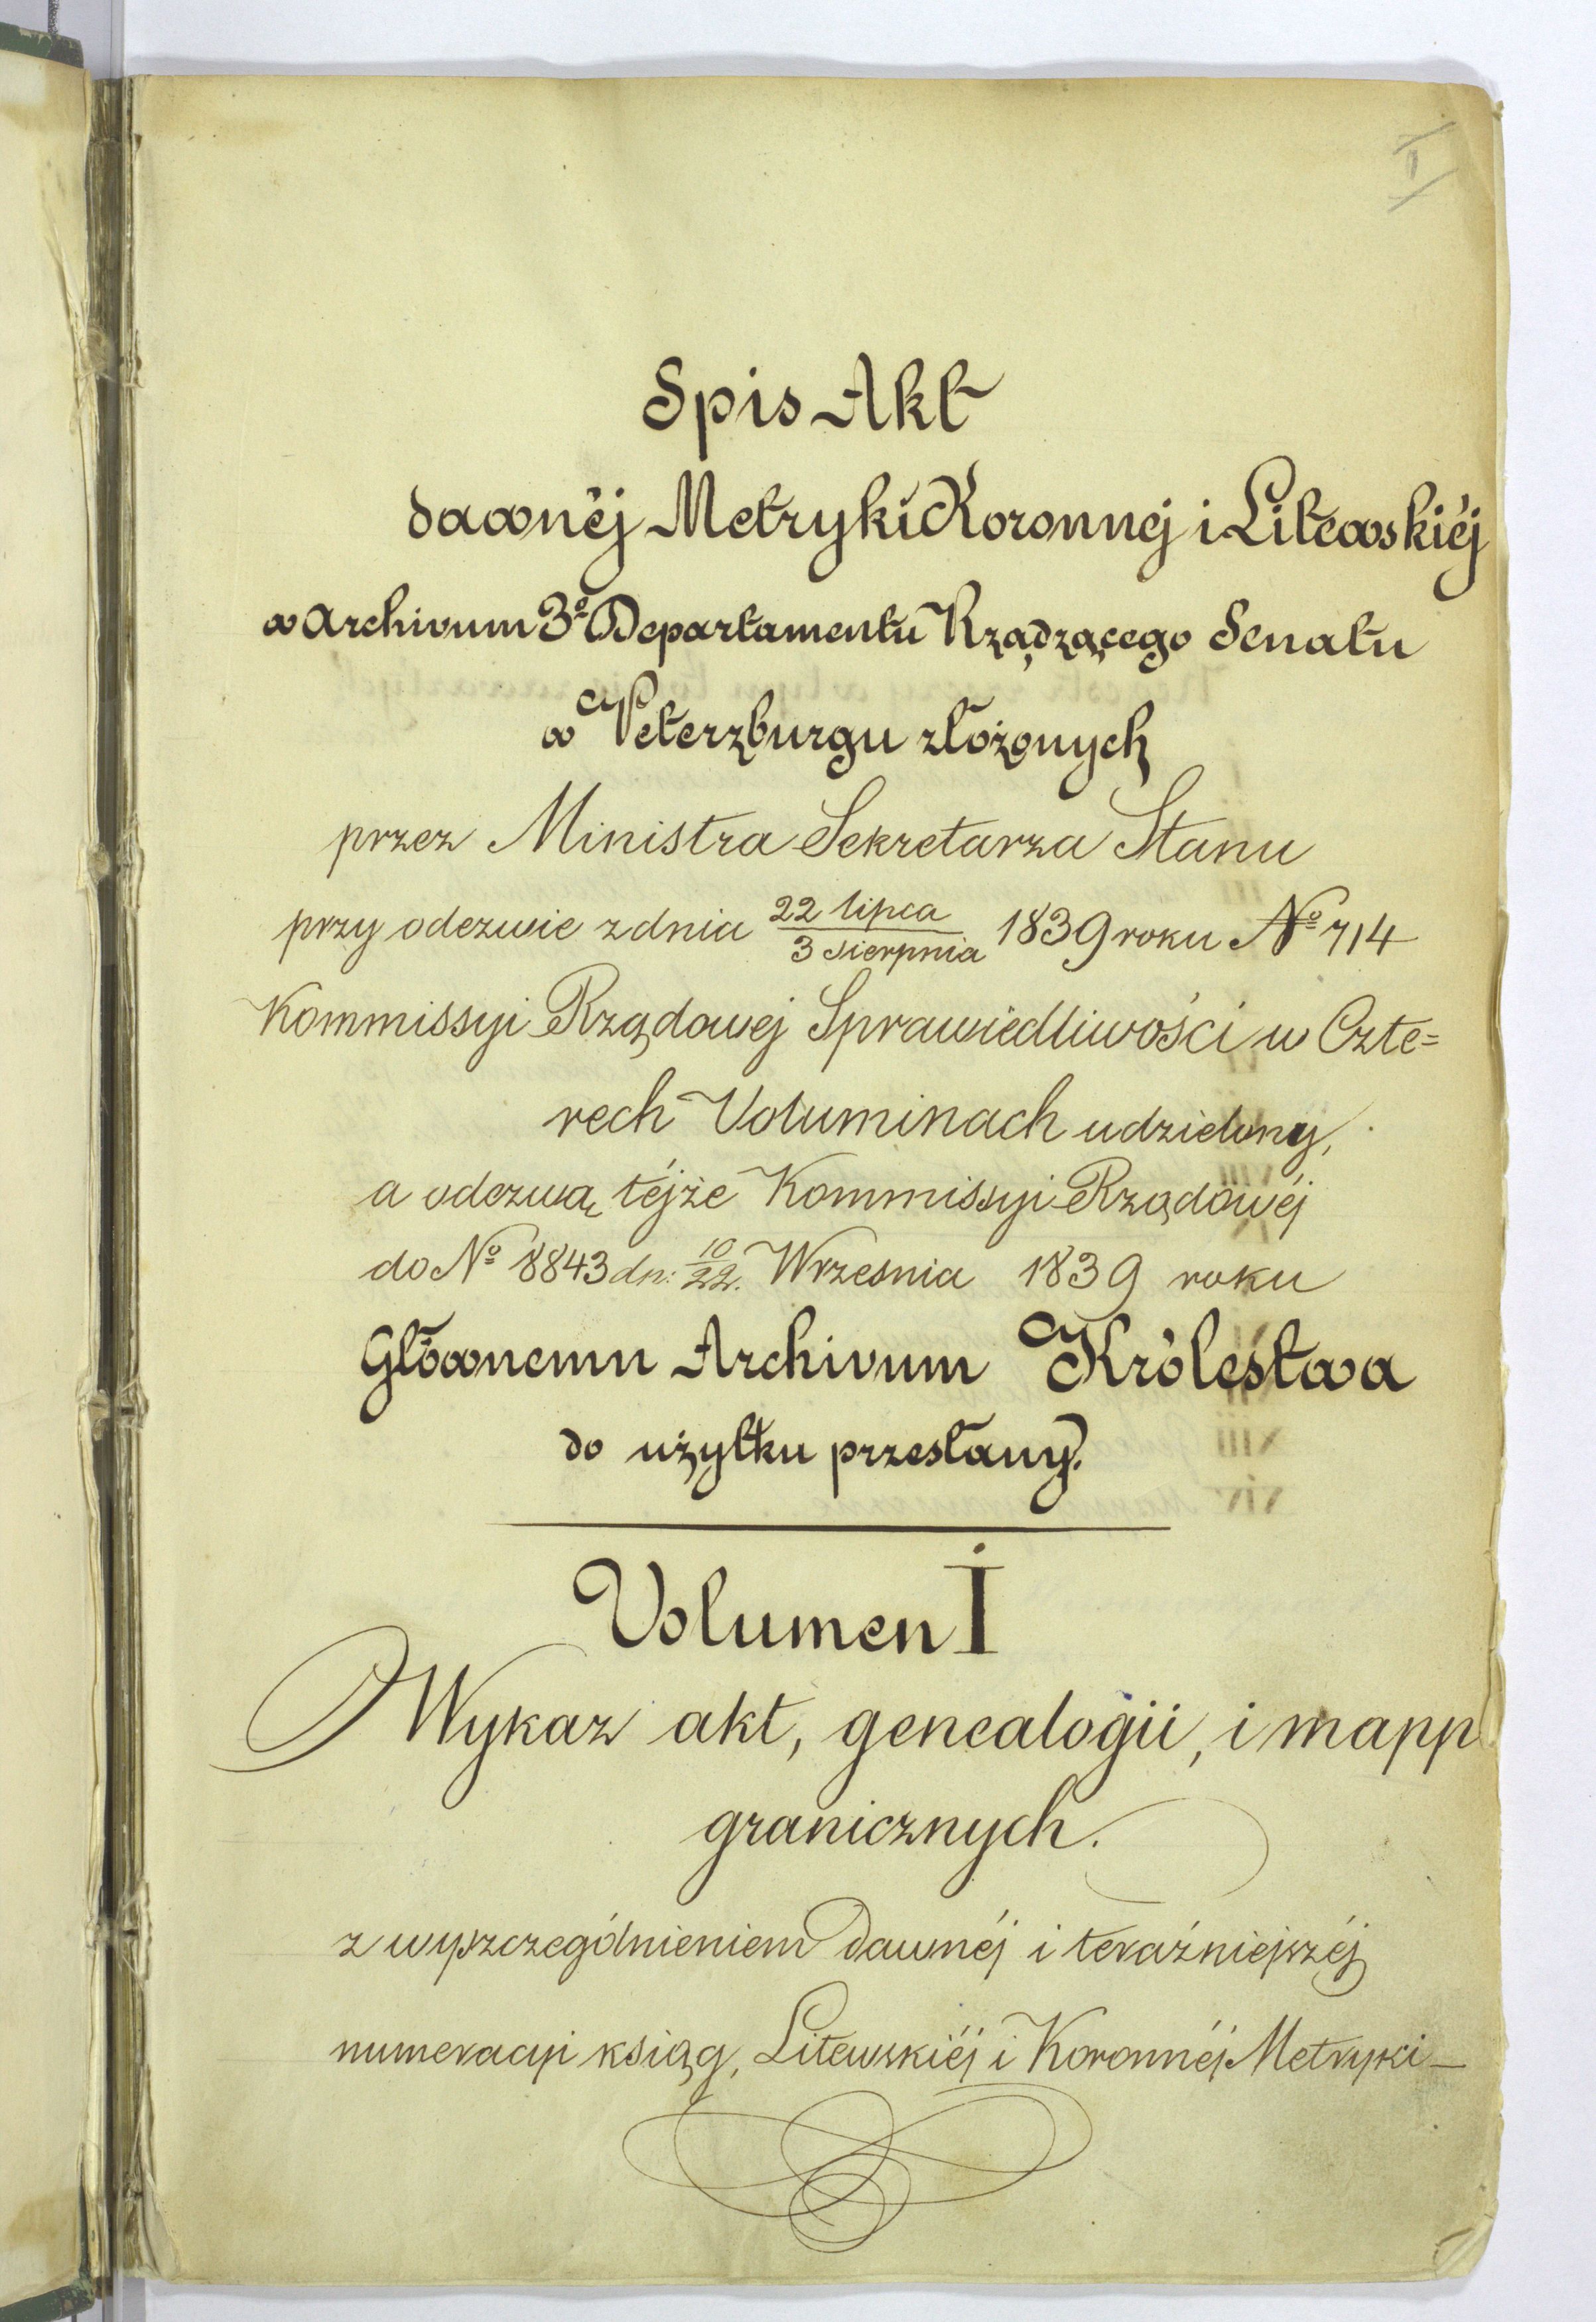 I
Spis Akt
dawnéj Metryki Koronnej i Litewskiéj
w Archivum 3º Departamentu Rządzącego Senatu
w Peterzburgu złożonych
przez Ministra Sekretarza Stanu
przy odezwie z dnia 22 lipca / 3 sierpnia 1839 roku Nº 714
Kommissyi Rządowej Sprawiedliwości w Czte=
rech Voluminach udzielony,
a odezwą téjże Kommissyi Rządowéj
do Nº 8843 dn: 10/22. Wrzesnia 1839 roku
Głównemu Archivum Królestwa
do użytku przesłany.
Volumen I
Wykaz akt, genealogii, i mapp
granicznych.
z wyszczególnieniem dawnéj i teraźniejszéj
numeracyi ksiąg, Litewskiéj i Koronnéj Metryki –